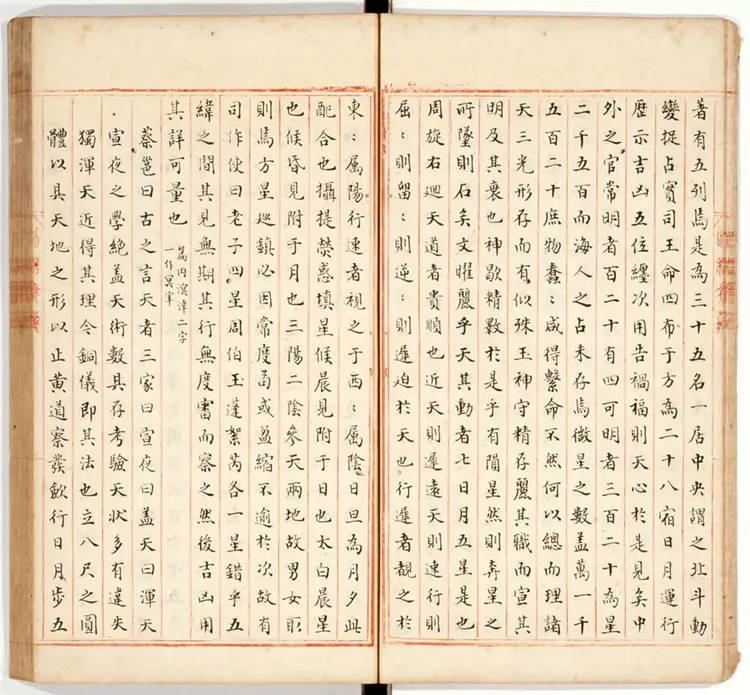 著有五列焉是為三十五名一居中央謂之北斗動
變挺占實司王命四布于方為二十八宿日月運行
歷示吉凶五位纏次用告禍福則天心於是見矣中
外之官常明者百二十有四可明者三百二十為星
二千五百而海人之占未存焉微星之數蓋萬一千
五百二十庶物蠢：咸得繫命不然何以總而理諸
天三光形存而有似珠玉神守精存麗其職而宣其
明及其衰也神歇精斁於是乎有隕星然則奔星之
所墜則石矣文曜麗乎天其動者七日月五星是也
周旋右迴天道者貴順也近天則遲遠天則速行則
屈：則留：則逆：則遲迫於天也行遲者覩之於
東：屬陽行速者視之于西：屬陰日旦為月夕此
配合也攝提熒惑填星候晨見附于日也太白晨星
也候昏見附于月也三陽二陰參天兩地故男女取
則焉方星巡鎮必因常度苟或盈縮不逾於次故有
司作使曰老子四星周伯玉蓬絮芮各一星錯乎五
緯之間其見無期其行無度審而察之然後吉凶用
其詳可量也
篇内溟涬二字
一作冥莘
蔡邕曰古之言天者三家曰宣夜曰盖天曰渾天
宣夜之學絶盖天術數具存考驗天狀多有違失
獨渾天近得其理今銅儀即其法也立八尺之圓
體以具天地之形以止黄道察發歛行日月步五